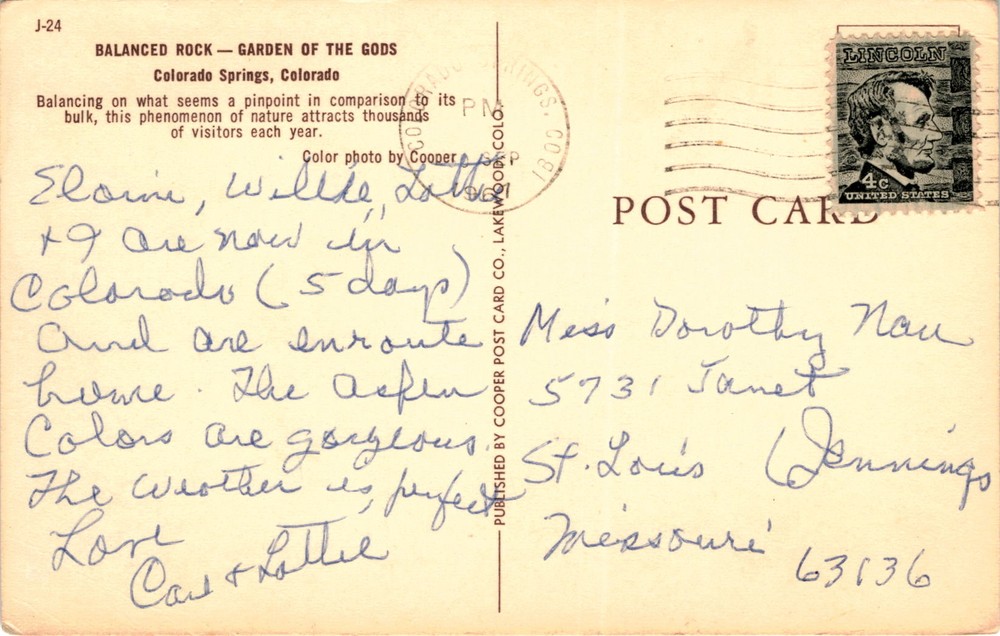 J-24
BALANCED ROCK — GARDEN OF THE GODS
Colorado Springs, Colorado
Balancing on what seems a pinpoint in comparison to its
bulk, this phenomenon of nature attracts thousands
of visitors each year.
Color photo by Cooper
Elaine, Willke, Lottie
+ I are now in
Colorado (5 days)
and are enroute
home. The aspen
Colors are gorgeous.
The weather is perfect
Love
Carl + Lottie
PUBLISHED BY COOPER POST CARD CO., LAKEWOOD, COLO.
COLORADO SPRINGS, COLO.
PM
SEP
LINCOLN
4c
UNITED STATES
POST CARD
Miss Dorothy Nau
5731 Janet
St. Louis (Jennings
Missouri
63136